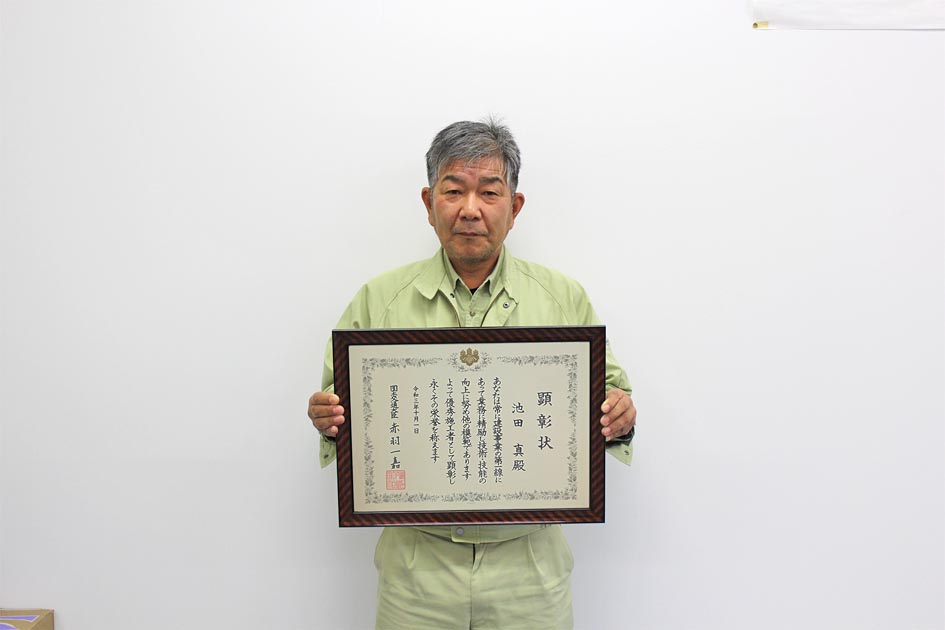 顕彰状
池田 真殿
あなたは常に建設事業の第一線に
あって業務に精励し技術・技能の
向上に努め他の模範であります
よって優秀施工者として顕彰し
永くその栄誉を称えます
令和三年十月一日
国土交通大臣 赤羽一嘉